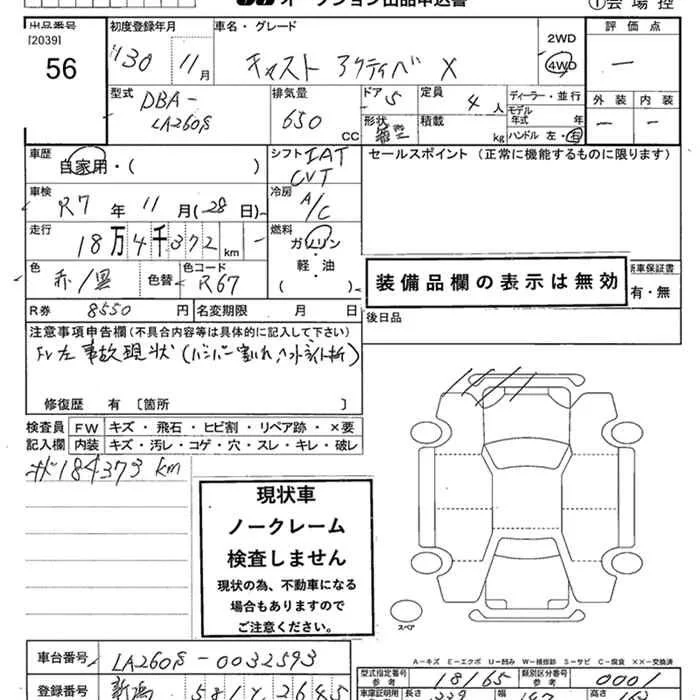 オークション出品申込書
①会場控
出品番号
[2039]
56
初度登録年月
H30 11月
車名・グレード
キャスト アクティバ X
2WD
4WD
評価点
ー
型式
DBA-
LA260S
排気量
650 CC
ドア 5
定員 4 人
形状
積載 kg
ディーラー・並行
モデル年式 年
ハンドル 左・右
外装 内装
ー ー
車歴
自家用・( )
シフト IAT
CVT
セールスポイント(正常に機能するものに限ります)
車検
R7年11月(28日)
冷房
A/C
走行
18万4千372km
燃料
ガソリン
軽・油
( )
色
赤/黒
色替
色コード
R67
装備品欄の表示は無効
新車保証書
有・無
R券 8550円
名変期限 月 日
後日品
注意事項申告欄(不具合内容等は具体的に記入して下さい)
Fr左 事故現状(バンパー割れ、ヘッドライト折)
修復歴 有 〔箇所 〕
検査員 FW キズ・飛石・ヒビ割・リペア跡・×要
記入欄 内装 キズ・汚レ・コゲ・穴・スレ・キレ・破レ
184373 km
現状車
ノークレーム
検査しません
現状の為、不動車になる
場合もありますので
ご注意ください。
スペア
A-キズ E-エクボ U-凹み W-補修跡 S-サビ C-腐食 ××-交換済
車台番号 LA260S-0032593
型式指定番号 参考 18165
類別区分番号 参考 0001
登録番号 新潟 581
長さ
幅
高さ